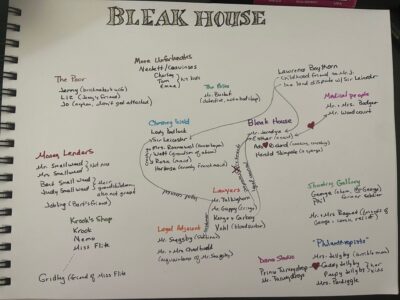 BLEAK HOUSE
The Poor
Jenny (brickmaker's wife)
Liz (Jenny's friend)
Jo (orphan,
More Unfortunates
Neckett/Coavinses
Charley
Tom
Emma
his kids
The Police
Mr. Bucket
(detective,
Lawrence Boythorn
Childhood friend to Mr. J.
In a land dispute w/ Sir Leicester
Chesney Wold
Lady Dedlock
Sir Leicester
Mrs. Rouncewell (housekeeper)
Watt (grandson of above)
Rosa (maid)
Hortense (French maid)
Bleak House
Mr. Jarndyce
Esther
Ada
Richard (cousins,
Harold Skimpole
Medical people
Mr. + Mrs. Badger
Mr. Woodcourt
Money Lenders
Mr. Smallweed
Mrs. Smallweed
Old ones
Bart Smallweed
Judy Smallweed
their grandchildren,
Jobling (Bart's friend)
Lawyers
Mr. Tulkinghorn
Mr. Guppy
Kenge + Carboy
Vohl
Shooting Gallery
George
Phil
Mr. + Mrs. Bagnet (friends of George's
Krook's Shop
Krook
Nemo
Miss Flite
Gridley (friend of Miss Flite)
Legal Adjacent
Mr. Snagsby
Mr. + Mrs. Chadband
(acquaintances of Mr. Snagsby)
Dance Studio
Prince Turveydrop
Mr. Turveydrop
"Philanthropists"
Mrs. Jellyby (terrible mom)
Caddy Jellyby
Peepy Jellyby
her kids
Mrs. Pardiggle